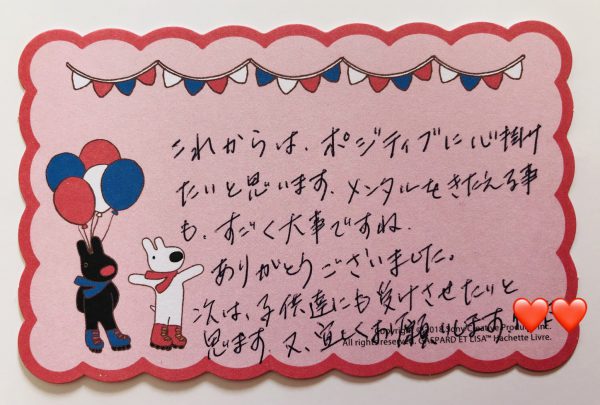 これからは、ポジティブに心掛け
たいと思います。メンタルをきたえる事
も、すごく大事ですね.
ありがとうございました。
次は、子供達にも受けさせたいと
思います。又、宜しくお願いします
Copyright © 2018 Sony Creative Products Inc.
All rights reserved. GASPARD ET LISA™ Hachette Livre.